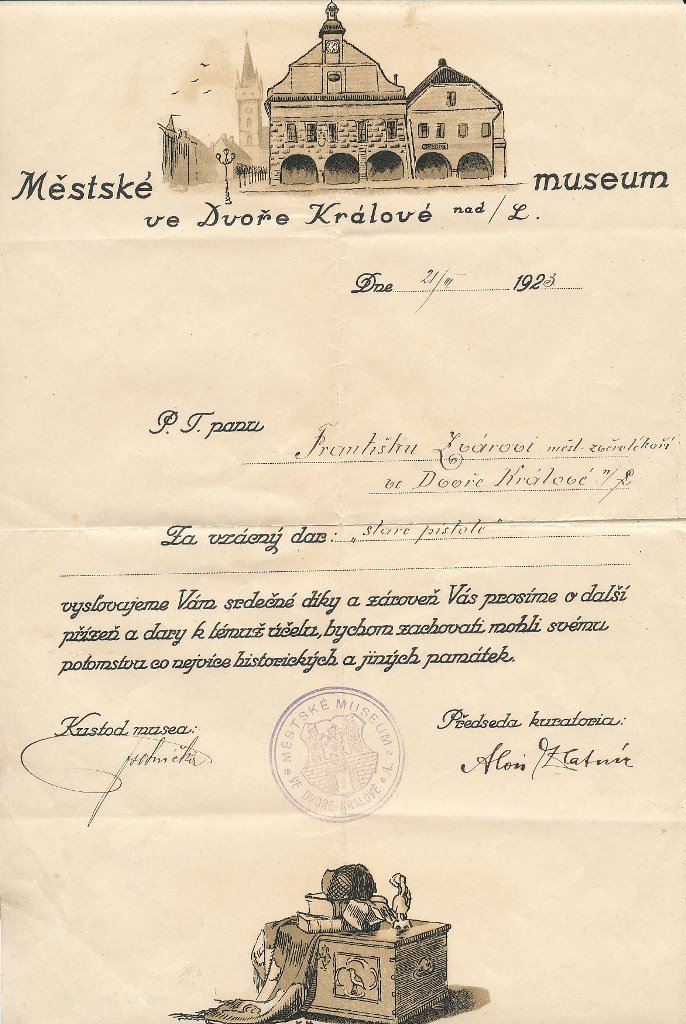 Městské museum
ve Dvoře Králové nad/L.
Dne 21/III 1923
P. T. panu
Františku Zvárovi měst. zvěrolékaři
ve Dvoře Králové n/L
Za vzácný dar: „staré pistole"
vyslovujeme Vám srdečné díky a zároveň Vás prosíme o další
přízeň a dary k témuž účelu, bychom zachovati mohli svému
potomstvu co nejvíce historických a jiných památek.
Kustod musea:
Předseda kuratoria:
Alois Zlatník
MĚSTSKÉ MUSEUM
VE DVOŘE KRÁLOVÉ n. L.